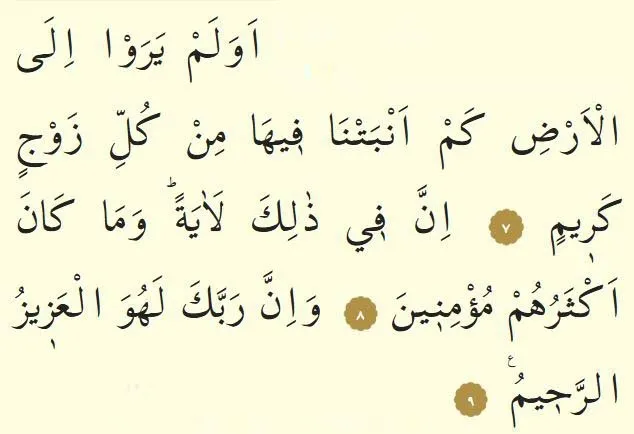 اَوَلَمْ يَرَوْا اِلَى
الْاَرْضِ كَمْ اَنْبَتْنَا ف۪يهَا مِنْ كُلِّ زَوْجٍ
كَر۪يمٍ ﴿٧﴾ اِنَّ ف۪ي ذٰلِكَ لَاٰيَةًۜ وَمَا كَانَ
اَكْثَرُهُمْ مُؤْمِن۪ينَ ﴿٨﴾ وَاِنَّ رَبَّكَ لَهُوَ الْعَز۪يزُ
الرَّح۪يمُ۟ ﴿٩﴾